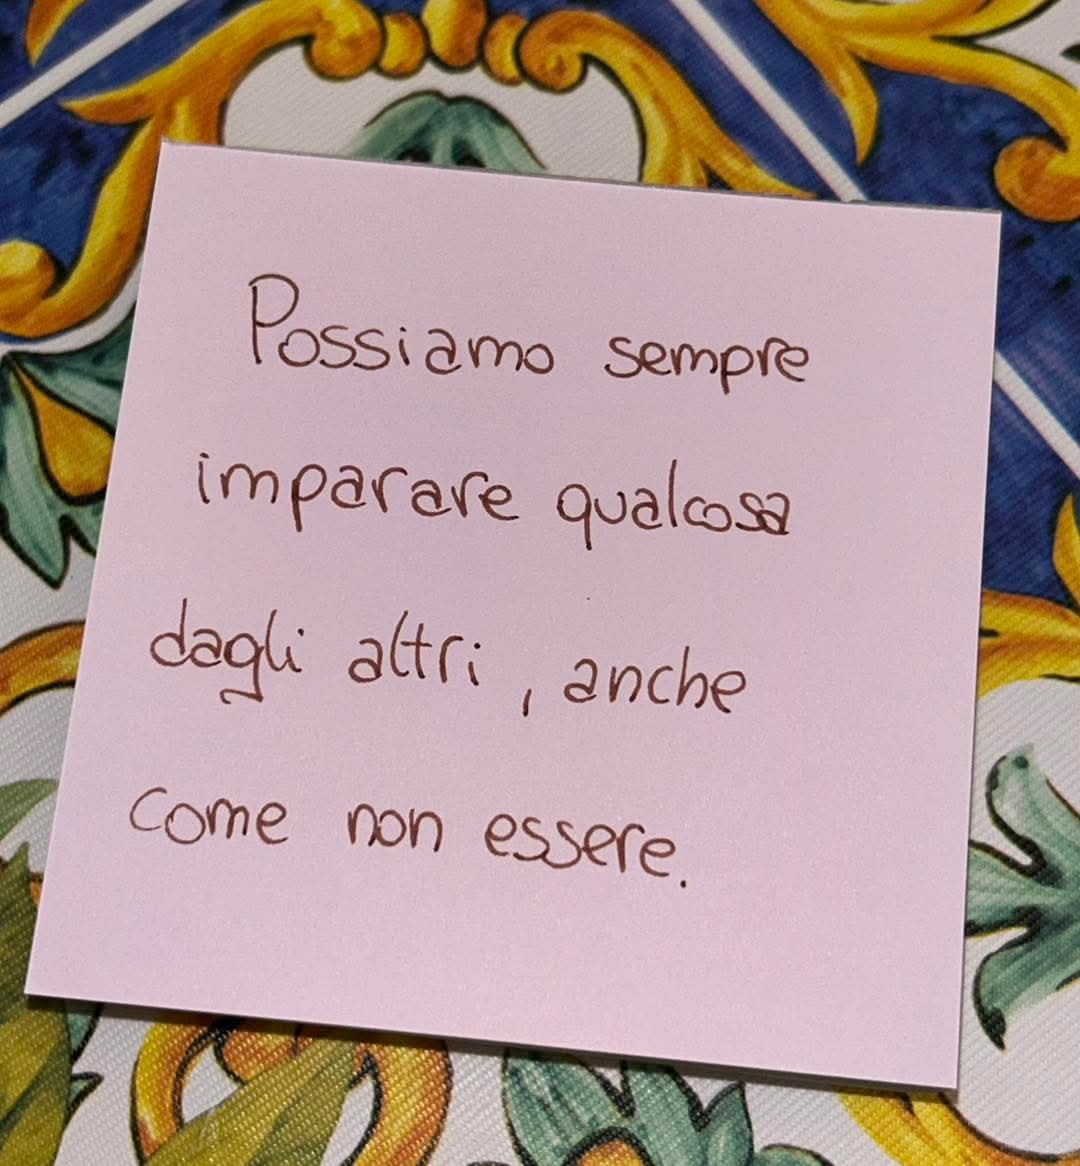 Possiamo sempre
imparare qualcosa
dagli altri, anche
come non essere.